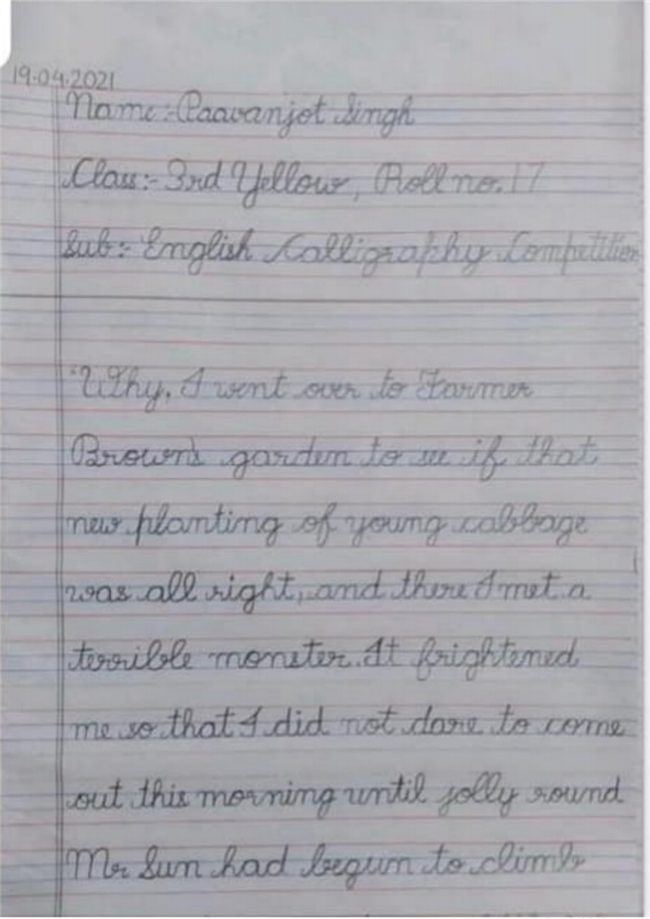 19.04.2021
Name:- Paavanjot Singh
Class:- 3rd Yellow, Roll no. 17
Sub:- English Calligraphy Competition
"Why, I went over to Farmer
Brown's garden to see if that
new planting of young cabbage
was all right, and there I met a
terrible monster. It frightened
me so that I did not dare to come
out this morning until jolly round
Mr Sun had begun to climb